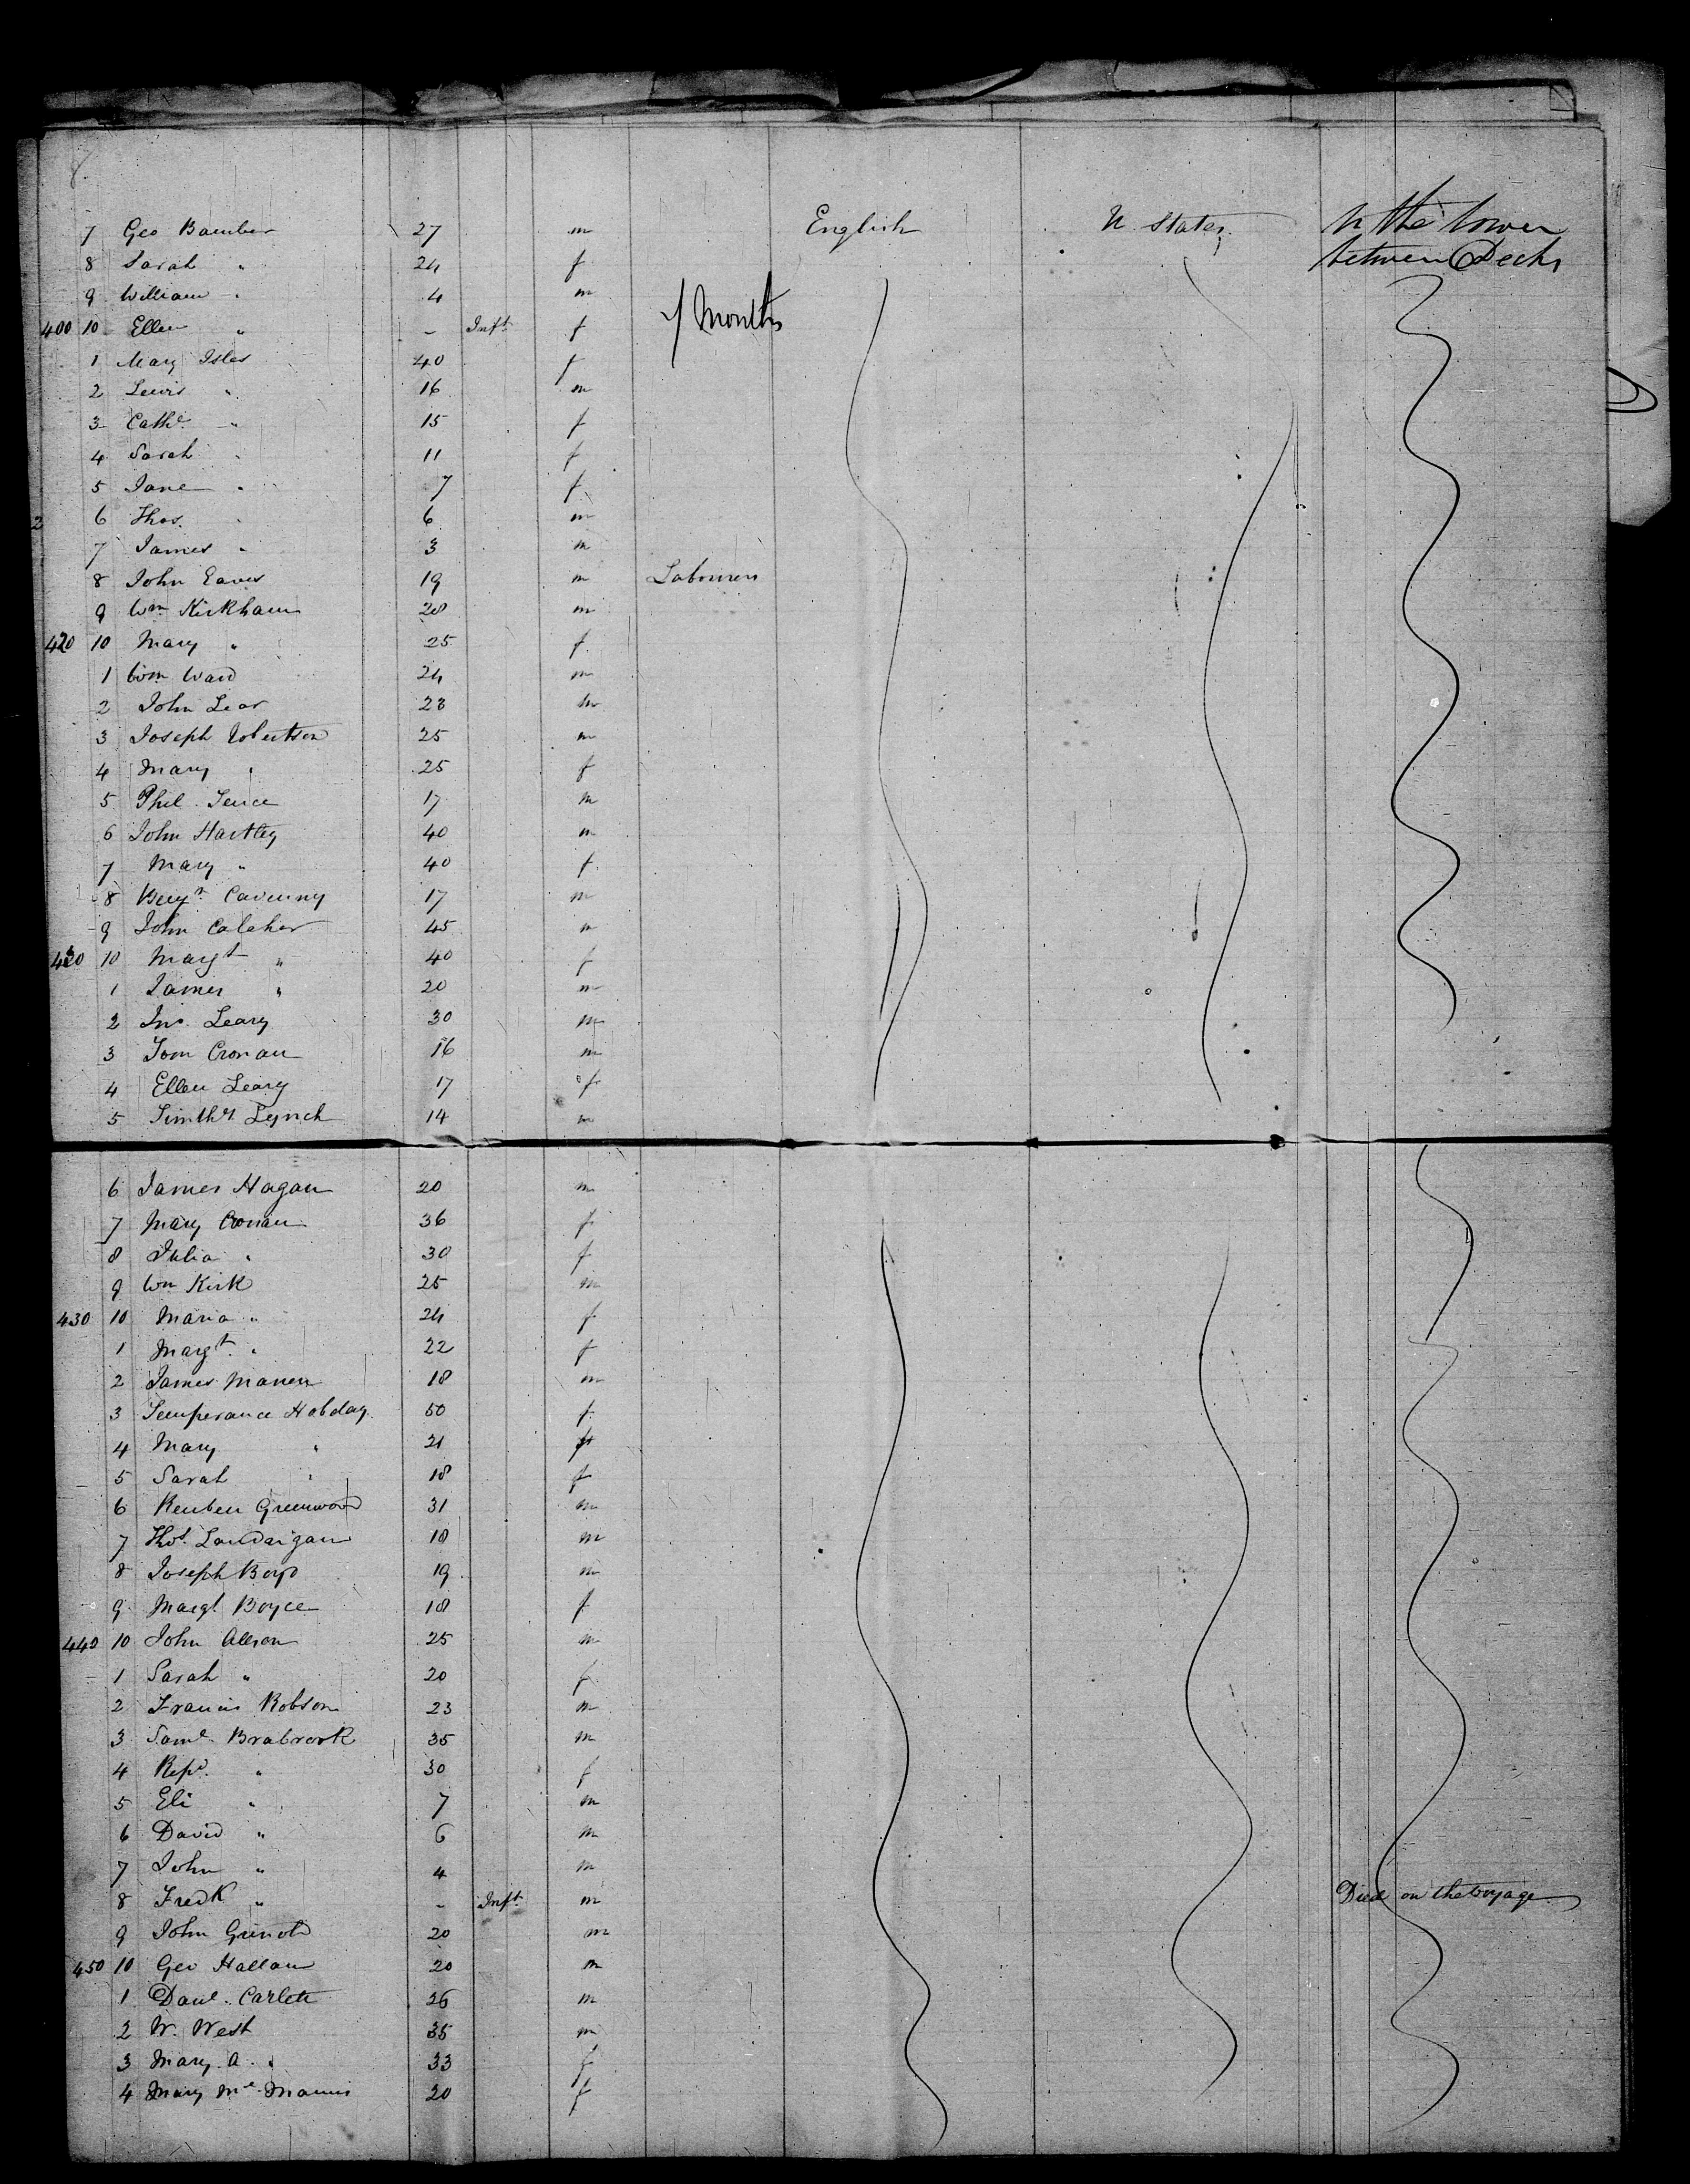 7 Geo Bamber 27 m English U. States, In the lower
8 Sarah " 24 f between Decks
9 William " 4 m
400 10 Ellen " - Inft f Months
1 Mary Isles 40 f
2 Lewis " 16 m
3 Cathe " 15 f
4 Sarah " 11 f
5 Jane " 7 f
6 Thos. " 6 m
7 James " 3 m
8 John Eaves 19 m Labourers
9 Wm Kirkham 28 m
420 10 Mary " 25 f
1 Wm Ward 24 m
2 John Lear 23 m
3 Joseph Robertson 25 m
4 Mary " 25 f
5 Phil. 17 m
6 John Hartley 40 m
7 Mary " 40 f
8 Benjn 17 m
9 John Calaher 45 m
10 Margt " 40 f
1 James " 20 m
2 Jno. Leary 30 m
3 Tom Cronan 16 m
4 Ellen Leary 17 f
5 Timthy Lynch 14 m
6 James Hagan 20 m
7 Mary Cronan 36 f
8 Julia " 30 f
9 Wm Kirk 25 m
430 10 Maria " 24 f
1 Margt. " 22 f
2 James 18 m
3 Temperance Hobday 50 f
4 Mary " 21 f
5 Sarah " 18 f
6 Reuben Greenwood 31 m
7 Thos. Landargan 18 m
8 Joseph Boyd 19 m
9 Margt Boyce 18 f
440 10 John Allson 25 m
1 Sarah " 20 f
2 Francis Robson 23 m
3 Saml Brabrook 35 m
4 " 30 f
5 Eli " 7 m
6 David " 6 m
7 John " 4 m
8 Fredk " - Inft. m Died on the voyage
9 John 20 m
450 10 Geo Hallam 20 m
1 Danl. Carlett 26 m
2 W. West 35 m
3 Mary. A. " 33 f
4 Mary Mc Manus 20 f